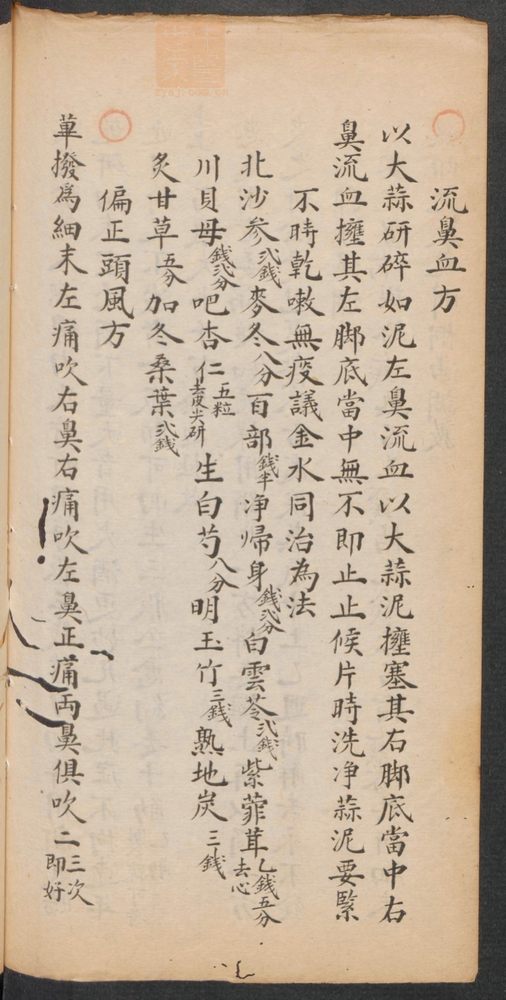 流鼻血方
以大蒜研碎如泥左鼻流血以大蒜泥擁塞其右脚底當中右
鼻流血擁其左脚底當中無不即止止候片時洗净蒜泥要緊
不時乾嗽無痰議金水同治為法
北沙参弍錢麥冬八分百部錢半净歸身錢弍分白雲苓弍錢紫菀茸乙錢五分去心
川貝母錢弍分吧杏仁五粒去皮尖研生白芍八分明玉竹三錢熟地炭三錢
炙甘草五分加冬桑葉弍錢
偏正頭風方
蓽撥為細末左痛吹右鼻右痛吹左鼻正痛両鼻俱吹二三次即好